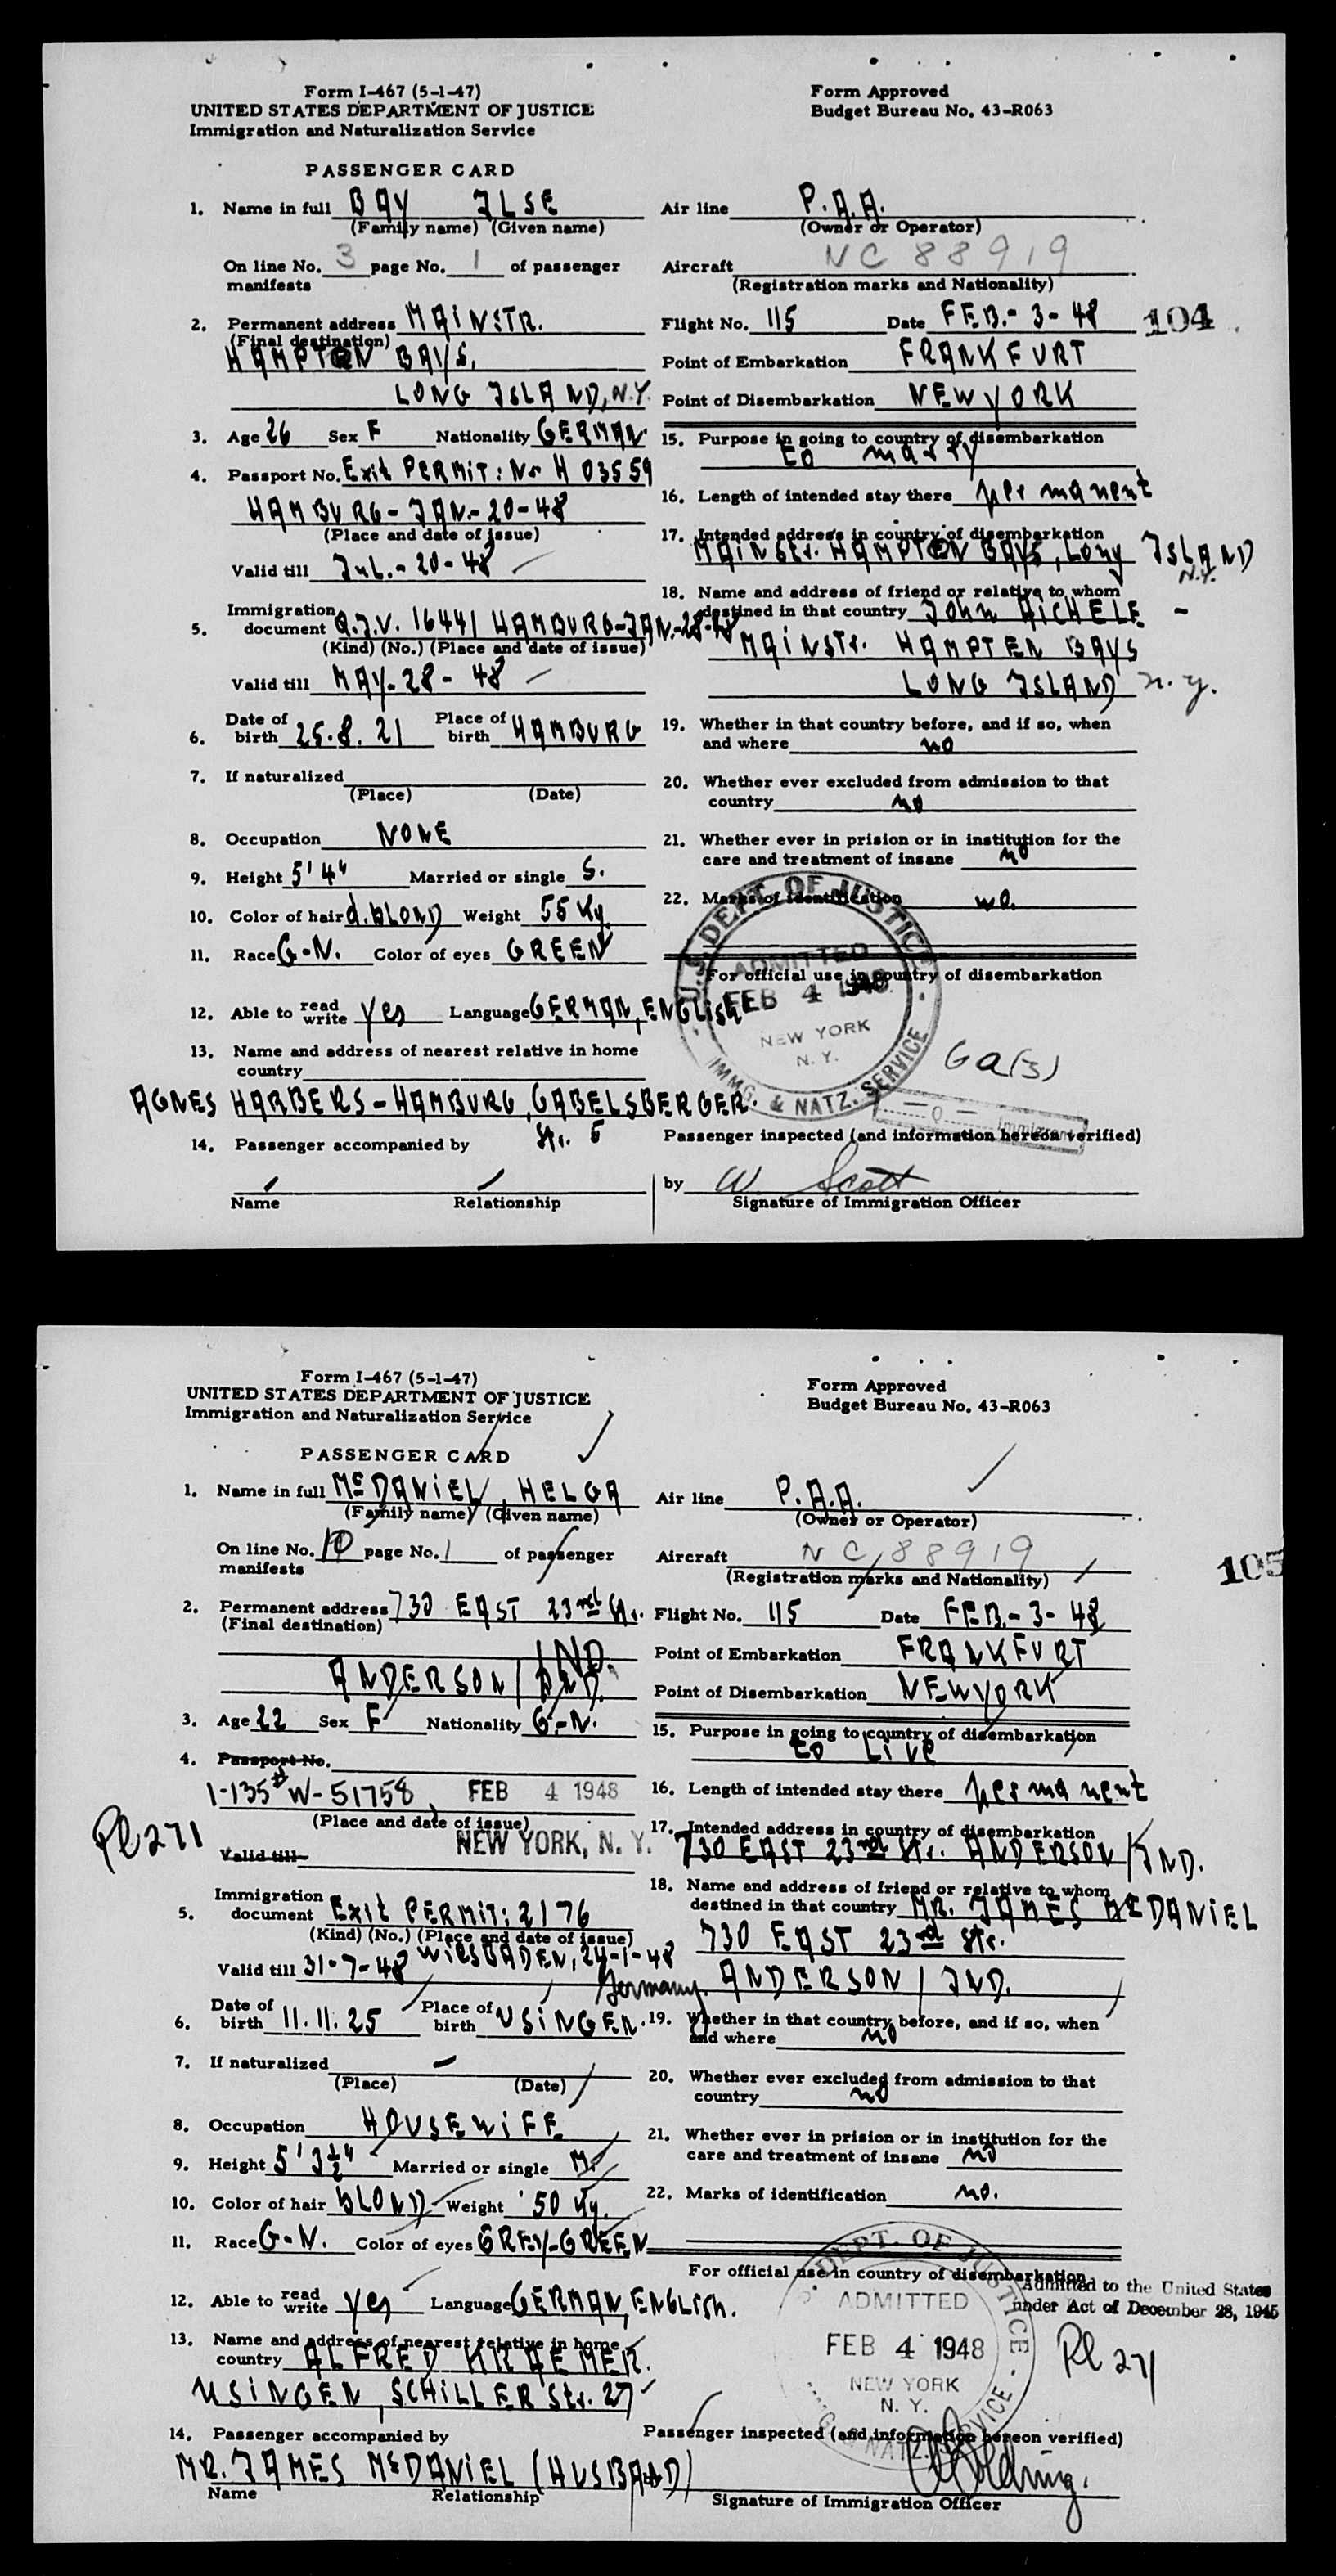 Form I-467 (5-1-47)
UNITED STATES DEPARTMENT OF JUSTICE
Immigration and Naturalization Service
Form Approved
Budget Bureau No. 43-R063
PASSENGER CARD
1. Name in full BAY ILSE
(Family name) (Given name)
Air line P.A.A.
(Owner or Operator)
On line No. 3 page No. 1 of passenger
manifests
Aircraft NC 88919
(Registration marks and Nationality)
2. Permanent address MAINSTR.
(Final destination)
HAMPTON BAYS,
LONG ISLAND, N.Y.
Flight No. 115 Date FEB.-3-48
104
Point of Embarkation FRANKFURT
Point of Disembarkation NEWYORK
3. Age 26 Sex F Nationality GERMAN
4. Passport No. Exit PERMIT: Nr H 03559
HAMBURG-JAN.-20-48
(Place and date of issue)
Valid till JUL.-20-48
15. Purpose in going to country of disembarkation
to marry
16. Length of intended stay there permanent
17. Intended address in country of disembarkation
MAINSTr. HAMPTON BAYS, Long ISLAND
N.Y.
5. Immigration
document Q.I.V. 16441 HAMBURG-JAN.-28-48
(Kind) (No.) (Place and date of issue)
Valid till MAY-28-48
18. Name and address of friend or relative to whom
destined in that country John AICHELE -
MAINSTr. HAMPTEN BAYS
LONG ISLAND n.y.
6. Date of
birth 25.8.21 Place of
birth HAMBURG
19. Whether in that country before, and if so, when
and where no
7. If naturalized
(Place) (Date)
20. Whether ever excluded from admission to that
country no
8. Occupation NONE
21. Whether ever in prision or in institution for the
care and treatment of insane no
9. Height 5'4" Married or single S.
10. Color of hair d.BLOND Weight 55 Kg.
22. Marks of identification no.
11. Race G-N. Color of eyes GREEN
For official use in country of disembarkation
U.S. DEPT. OF JUSTICE
ADMITTED
FEB 4 1948
NEW YORK
N. Y.
IMMG. & NATZ. SERVICE
12. Able to read
write yes Language GERMAN, ENGLISH
13. Name and address of nearest relative in home
country
AGNES HARBERS-HAMBURG, GABELSBERGER.
Str. 5
6a(3)
- Q - Immigrant
14. Passenger accompanied by
Name Relationship
Passenger inspected (and information hereon verified)
by W Scott
Signature of Immigration Officer
Form I-467 (5-1-47)
UNITED STATES DEPARTMENT OF JUSTICE
Immigration and Naturalization Service
Form Approved
Budget Bureau No. 43-R063
PASSENGER CARD
1. Name in full McDANIEL, HELGA
(Family name) (Given name)
Air line P.A.A.
(Owner or Operator)
On line No. 10 page No. 1 of passenger
manifests
Aircraft NC 88919
(Registration marks and Nationality)
105
2. Permanent address 730 EAST 23rd Str.
(Final destination)
IND.
ANDERSON / IND.
Flight No. 115 Date FEB.-3-48
Point of Embarkation FRANKFURT
Point of Disembarkation NEWYORK
3. Age 22 Sex F Nationality G-N.
4. Passport No.
I-135 # W-51758, FEB 4 1948
(Place and date of issue)
NEW YORK, N. Y.
Valid till
Pl 271
15. Purpose in going to country of disembarkation
to Live
16. Length of intended stay there permanent
17. Intended address in country of disembarkation
730 EAST 23rd Str. ANDERSON / IND.
5. Immigration
document Exit PERMIT: 2176
(Kind) (No.) (Place and date of issue)
WIESBADEN, 24-1-48
Valid till 31-7-48
18. Name and address of friend or relative to whom
destined in that country MR. JAMES McDANIEL
730 EAST 23rd Str.
ANDERSON / IND.
6. Date of
birth 11.11.25 Place of
birth USINGEN. Germany.
19. Whether in that country before, and if so, when
and where no
7. If naturalized -
(Place) (Date)
20. Whether ever excluded from admission to that
country no
8. Occupation HOUSEWIFE
21. Whether ever in prision or in institution for the
care and treatment of insane no
9. Height 5'3½" Married or single M.
10. Color of hair BLOND Weight 50 Kg.
22. Marks of identification no.
11. Race G-N. Color of eyes GREY-GREEN
For official use in country of disembarkation
Admitted to the United States
under Act of December 28, 1945
DEPT. OF JUSTICE
ADMITTED
FEB 4 1948
NEW YORK
N. Y.
NATZ. SERVICE
Pl 271
12. Able to read
write yes Language GERMAN, ENGLISH.
13. Name and address of nearest relative in home
country ALFRED KRAEMER.
USINGEN, SCHILLER Str. 27
14. Passenger accompanied by
MR. JAMES McDANIEL (HUSBAND)
Name Relationship
Passenger inspected (and information hereon verified)
Signature of Immigration Officer